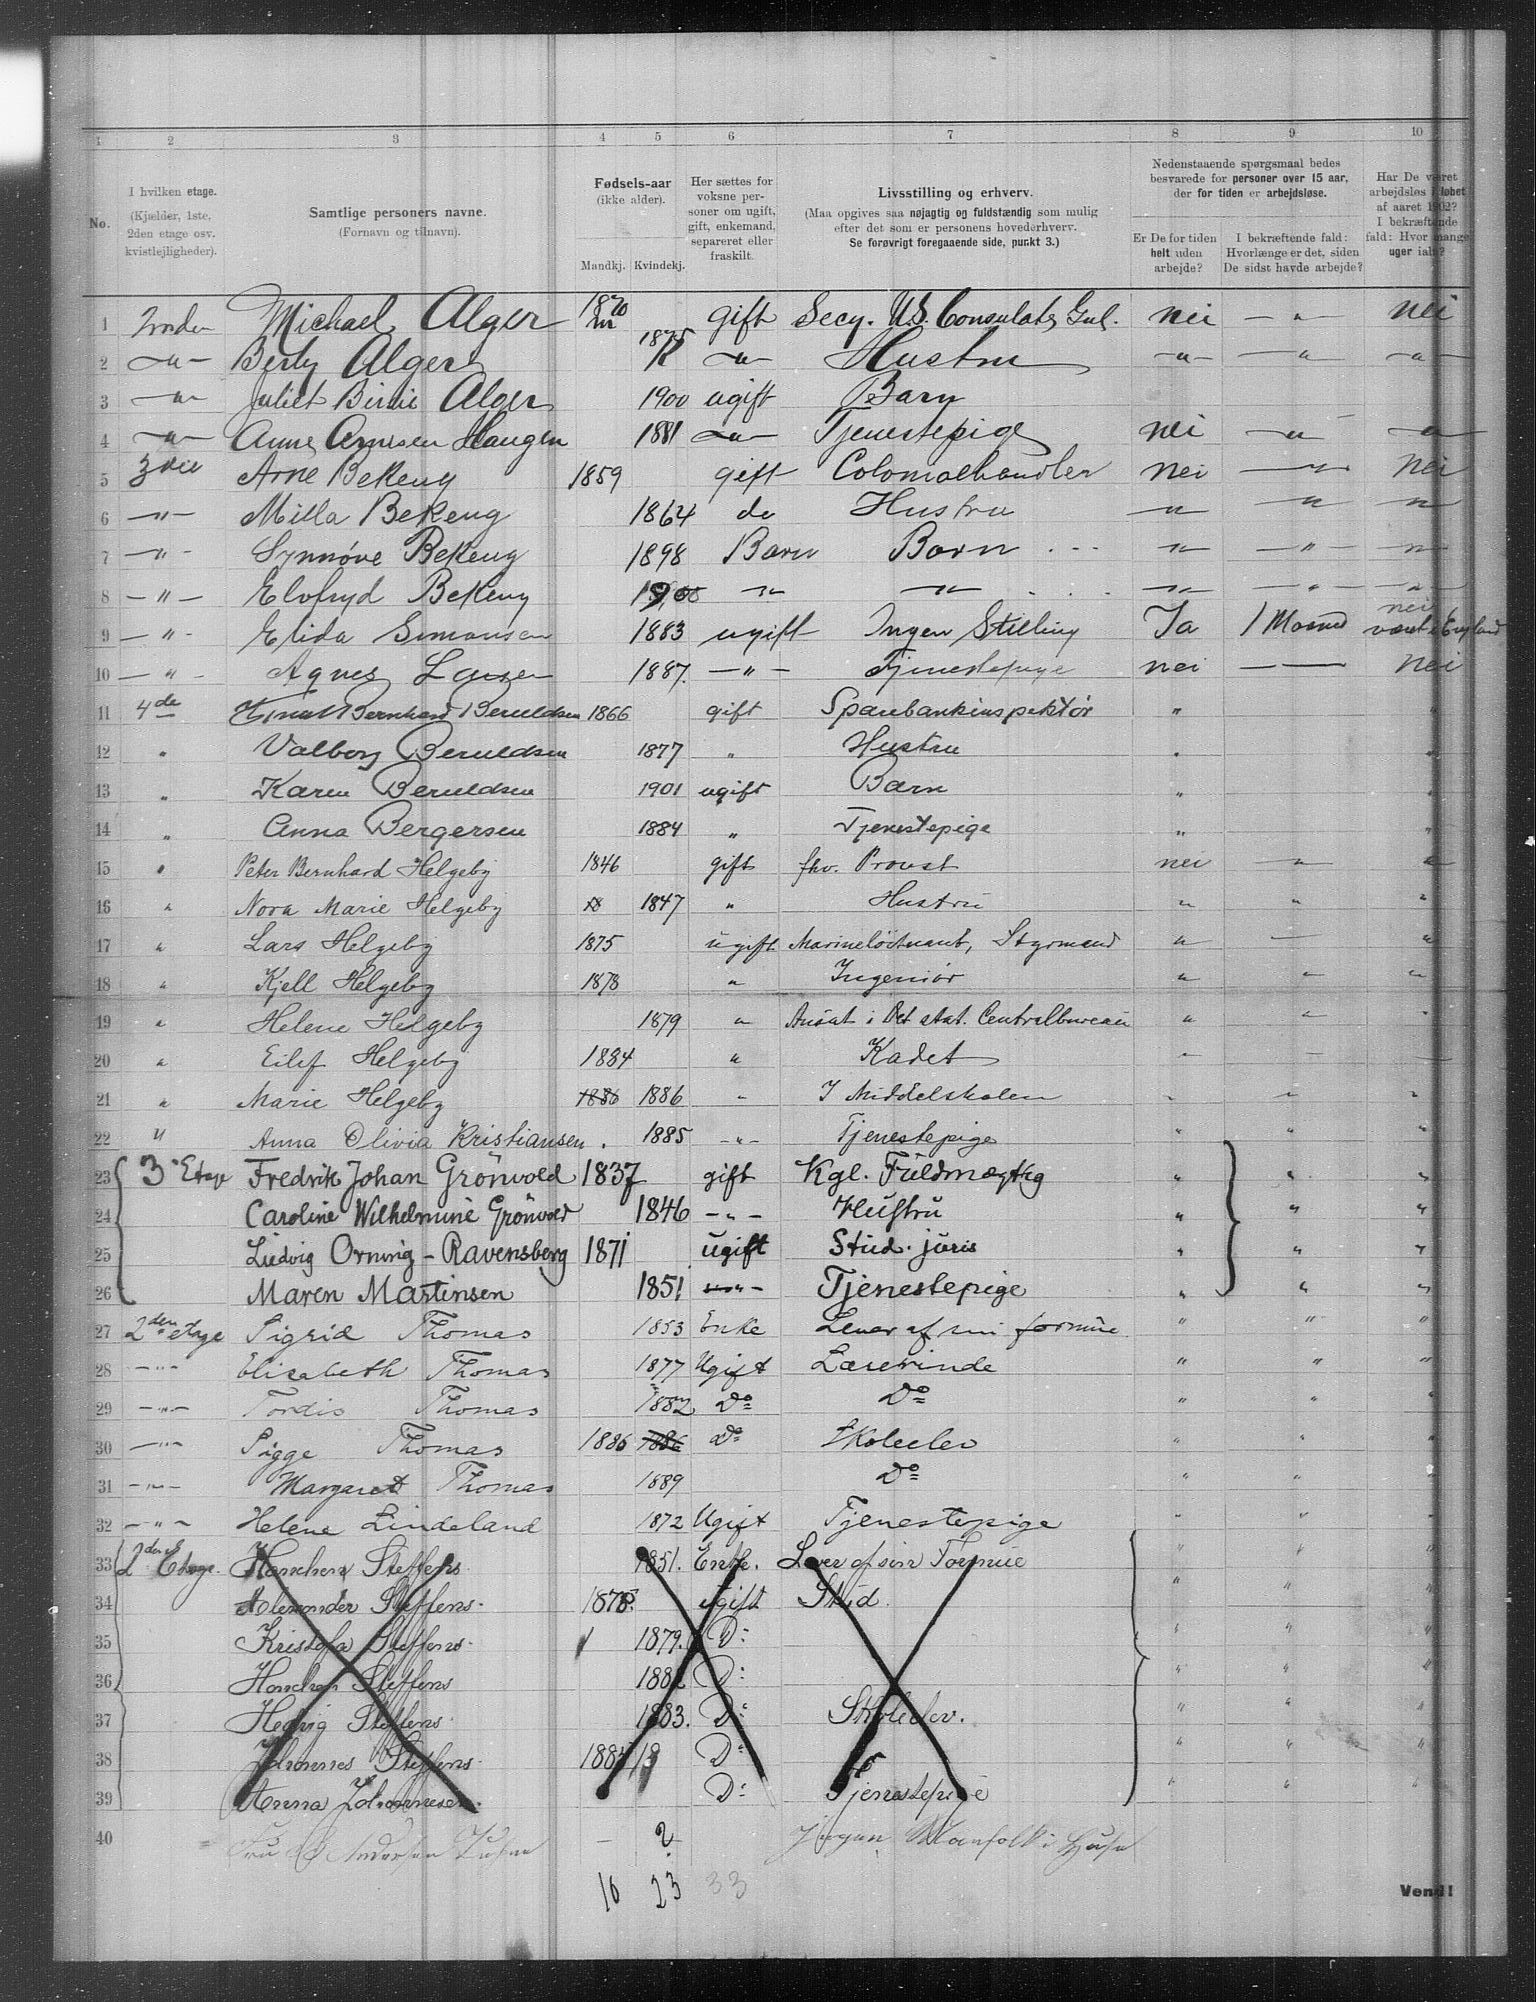 1 2 3 4 5 6 7 8 9 10
No.
I hvilken etage.
(Kjælder, 1ste,
2den etage osv.
kvistlejligheder).
Samtlige personers navne.
(Fornavn og tilnavn).
Fødsels-aar
(ikke alder).
Mandkj. Kvindekj.
Her sættes for
voksne per-
soner om ugift,
gift, enkemand,
separeret eller
fraskilt.
Livsstilling og erhverv.
(Maa opgives saa nøjagtig og fuldstændig som mulig
efter det som er personens hovederhverv.
Se forøvrigt foregaaende side, punkt 3.)
Nedenstaaende spørgsmaal bedes
besvarede for personer over 15 aar,
der for tiden er arbejdsløse.
Er De for tiden
helt uden
arbejde?
I bekræftende fald:
Hvorlænge er det, siden
De sidst havde arbejde?
Har De været
arbejdsløs i løbet
af aaret 1902?
I bekræftende
fald: Hvor mange
uger ialt?
1 Michael Alger 1870 gift Secy. U.S. Consulate Gul. nei — " — nei
2 — " — Alger 1875 — " — Hustru — " — — " — — " —
3 — " — Juliet Birnie Alger 1900 ugift Barn
4 — " — Anne Arnesen Haugen 1881 — " — Tjenestepige nei — " — — " —
5 Arne Bekeng 1859 gift Colonialhandler nei — " — nei
6 — " — Milla Bekeng 1864 do Hustru — " — — " — — " —
7 — " — Synnøve Bekeng 1898 Barn Barn — " — — " — — " —
8 — " — Bekeng 1900 — " — — " — — " — — " — — " —
9 — " — Elida Simonsen 1883 ugift Ingen Stilling Ja 1 Maaned nei været i England
10 — " — Agnes 1887. — " — Tjenestepige nei — nei
11 4de Bernhard Beruldsen 1866 gift Sparebankinspektør " "
12 " Valborg Beruldsen 1877 " Hustru " "
13 " Karen Beruldsen 1901 ugift Barn " "
14 " Anna Bergersen 1884 " Tjenestepige " "
15 " Peter Bernhard Helgeby 1846 gift fhv. Provst nei — " — "
16 " Nora Marie Helgeby 1847 " Hustru " " "
17 " Lars Helgeby 1875 ugift Marineløitnant, Styrmand " — "
18 " Kjell Helgeby 1878 " Ingeniør " " "
19 " Helene Helgeby 1879 " Ansat i Det stat. Centralbureau " " "
20 " Eilif Helgeby 1884 " Kadet " — —
21 " Marie Helgeby 1886 1886 " I Middelskolen " " "
22 " Anna Olivia Kristiansen. 1885 — " — Tjenestepige " " "
23 3 Etage Fredrik Johan Grönvold 1837 gift Kgl. Fuldmægtig " " "
24 Caroline Wilhelmine Grönvold 1846 — " — Hustru " " "
25 Ludvig Orning - Ravensberg 1871 ugift Stud. juris " " "
26 Maren Martinsen 1851 — " — Tjenestepige " " "
27 2den etage Sigrid Thomas 1853 Enke Lever af sin formue " " "
28 — " — Elisabeth Thomas 1877 Ugift Lærerinde " " "
29 — " — Tordis Thomas 1882 Do Do " " "
30 — " — Sigge Thomas 1886 1886 Do Skoleelev " " "
31 — " — Margaret Thomas 1889 Do " " "
32 — " — Helene Lindeland 1872 Ugift Tjenestepige " " "
33 2den Etage. Hanchen Steffens 1851. Enke. Lever af sin Formue " " "
34 Alexander Steffens. 1878. ugift Stud. " " "
35 Kristofa Steffens. 1879. Do " " "
36 Hanchen Steffens 1882 Do " " "
37 Hedvig Steffens. 1883. Do Skoleelev. " " "
38 Johannes Steffens. Do " " "
39 Anna Johannesen. Do Tjenestepige " " "
40 Fru Andersen — 2 Ingen Manfolk i Huse
16 23 33
Vend!